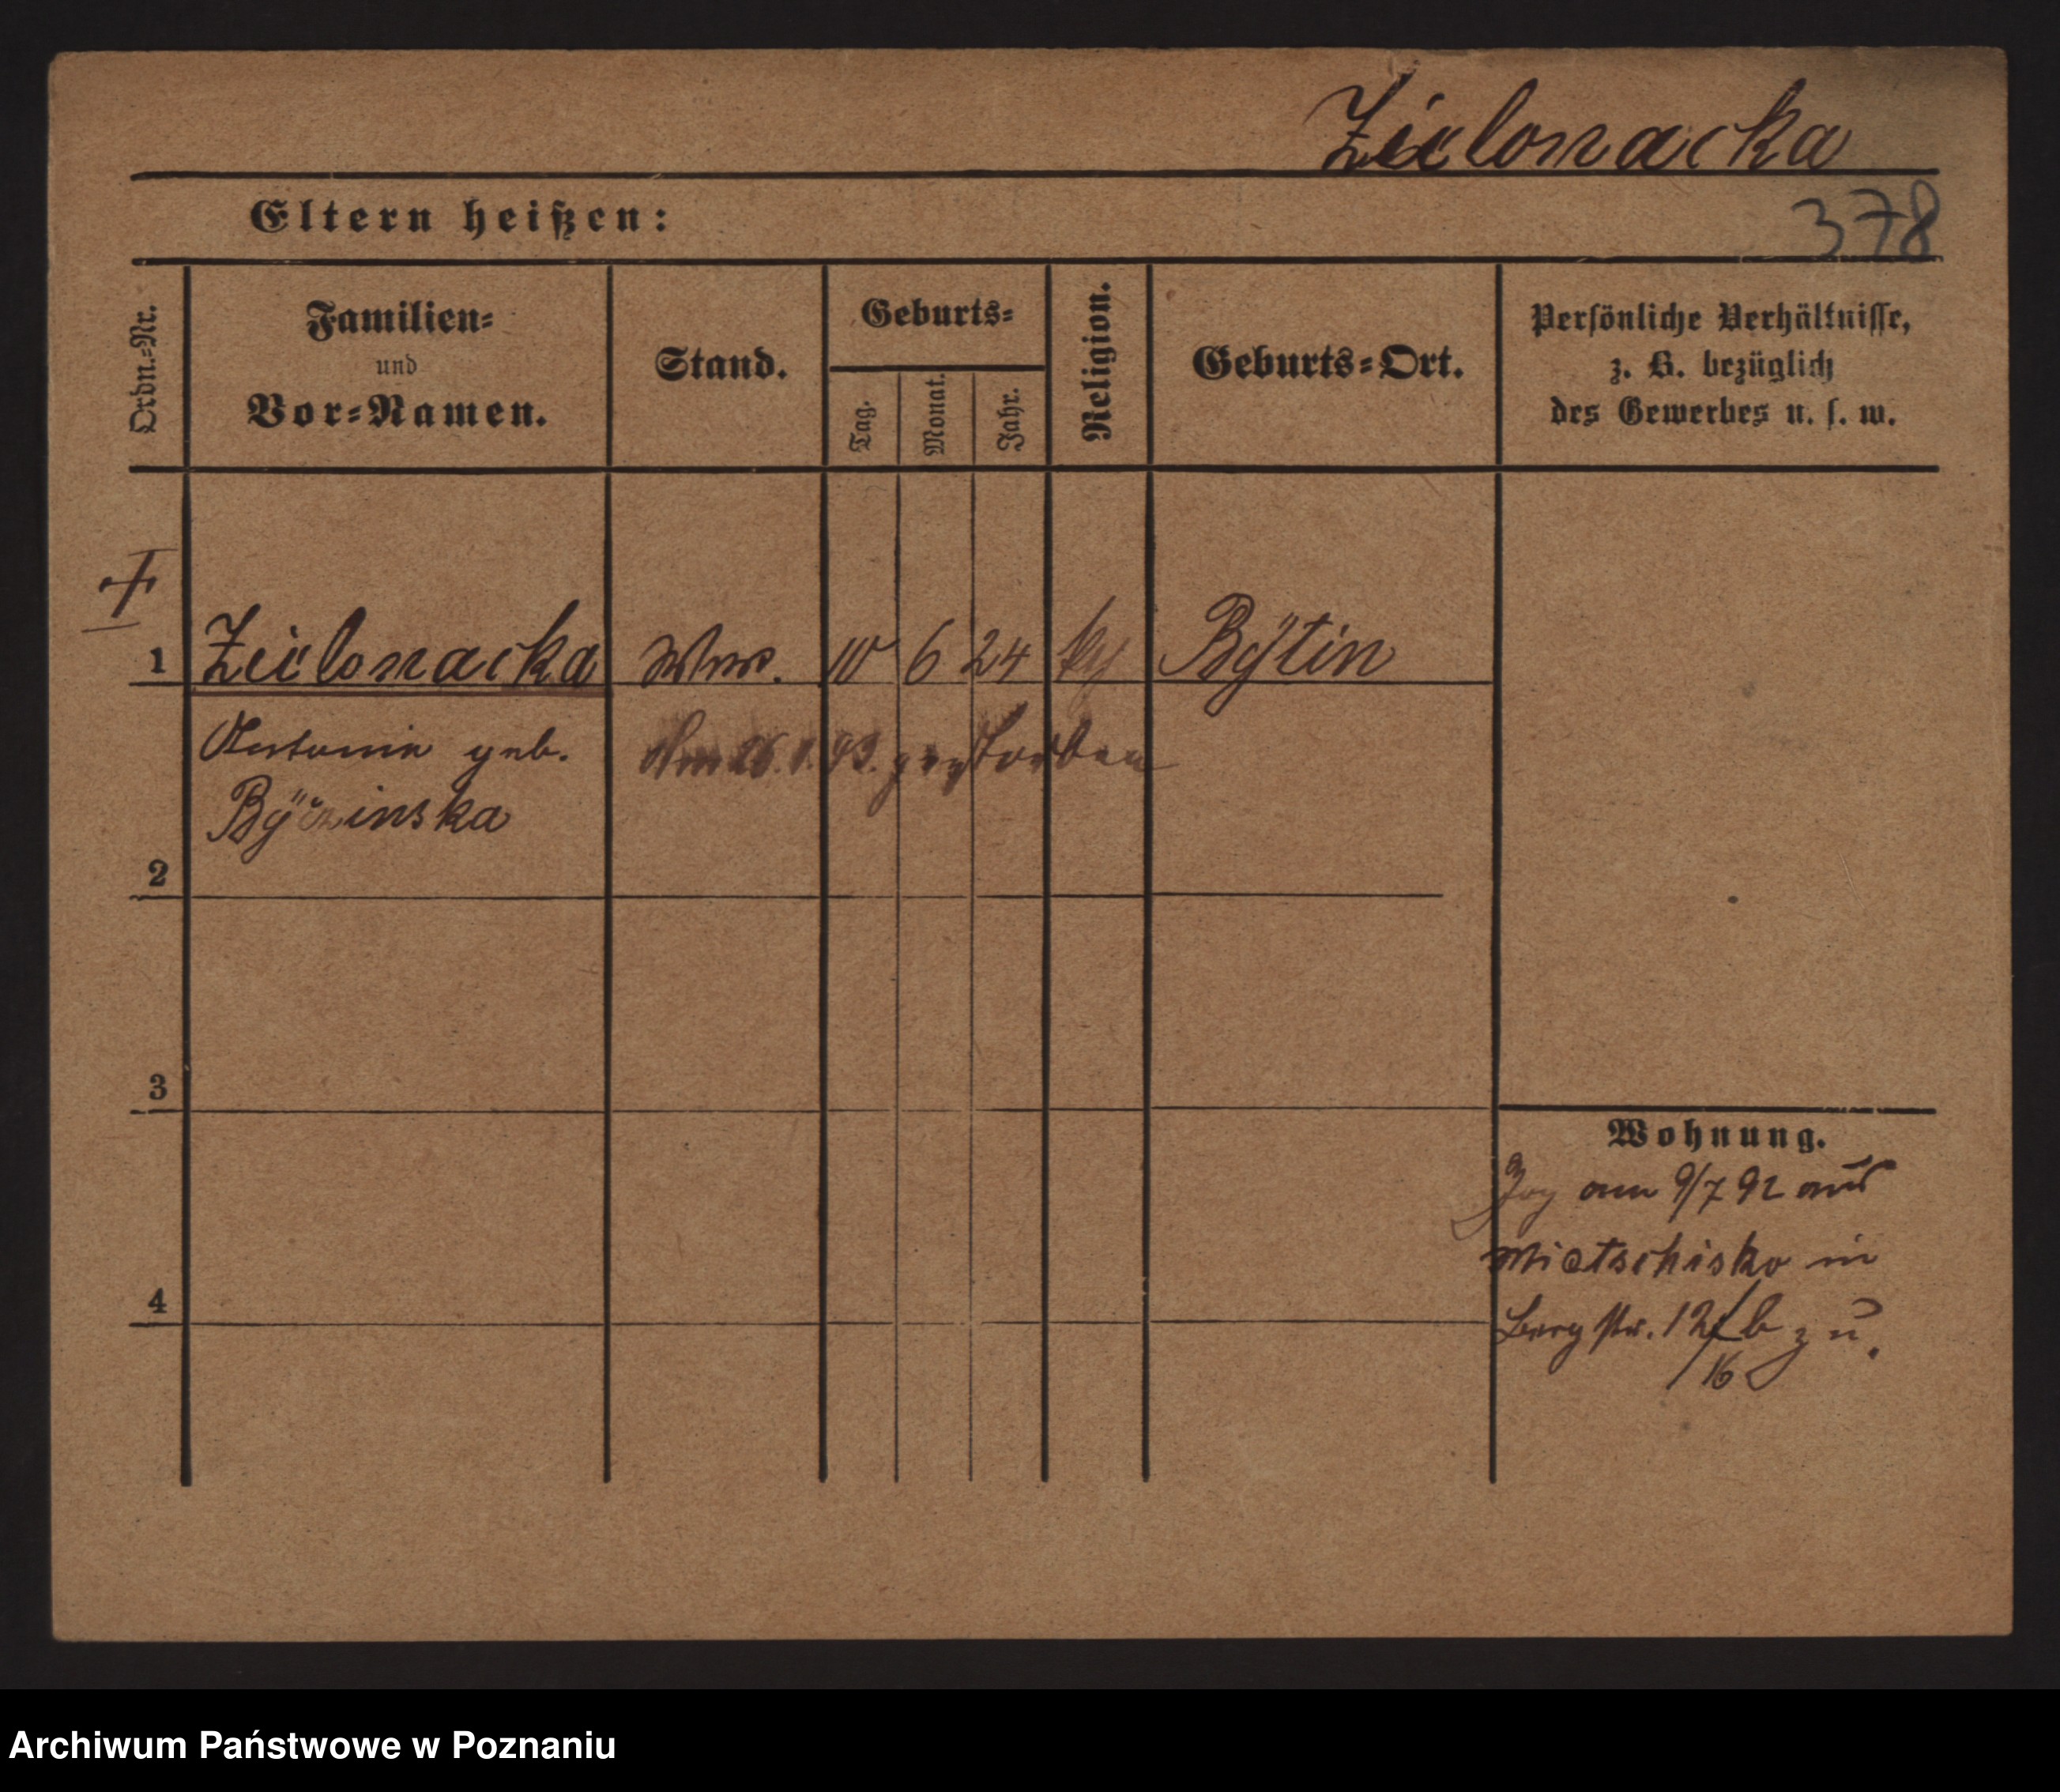 Zielonacka
Eltern heißen:
378
Ordn.=Nr.
Familien=
und
Vor=Namen.
Stand.
Geburts=
Tag.
Monat.
Jahr.
Religion.
Geburts=Ort.
Persönliche Verhältnisse,
z. B. bezüglich
des Gewerbes u. s. w.
1 Zielonacka Wwe. 10 6 24 Bÿtin
Antonie geb. gestorben
inska
2
3
4
Wohnung.
Zog am 9/7 92 aus
Mietschisko in
Berg str. 12 b zu.
16
Archiwum Państwowe w Poznaniu